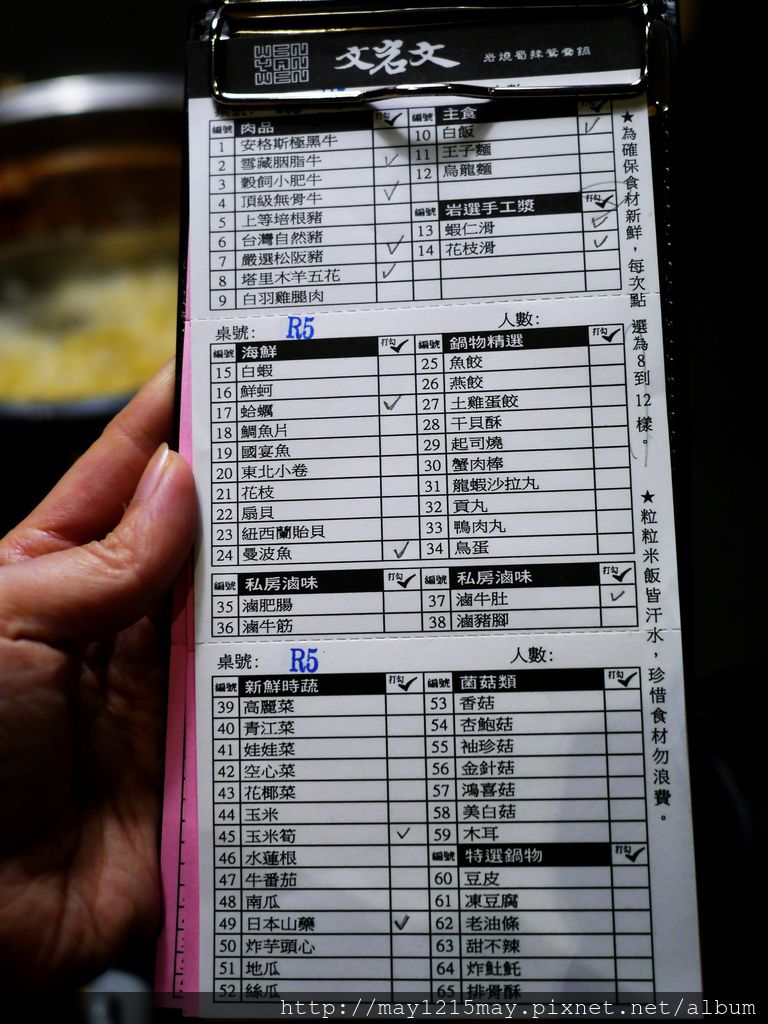 WEN YAN WEN 文岩文 岩燒蜀辣鴛鴦鍋
編號 肉品 打勾
1 安格斯極黑牛
2 雪藏胭脂牛
3 穀飼小肥牛
4 頂級無骨牛
5 上等培根豬
6 台灣自然豬
7 嚴選松阪豬
8 塔里木羊五花
9 白羽雞腿肉
編號 主食
10 白飯
11 王子麵
12 烏龍麵
編號 岩選手工漿 打勾
13 蝦仁滑
14 花枝滑
桌號: R5 人數:
編號 海鮮 打勾
15 白蝦
16 鮮蚵
17 蛤蠣
18 鯛魚片
19 國宴魚
20 東北小卷
21 花枝
22 扇貝
23 紐西蘭貽貝
24 曼波魚
編號 鍋物精選 打勾
25 魚餃
26 燕餃
27 土雞蛋餃
28 干貝酥
29 起司燒
30 蟹肉棒
31 龍蝦沙拉丸
32 貢丸
33 鴨肉丸
34 鳥蛋
編號 私房滷味 打勾
35 滷肥腸
36 滷牛筋
編號 私房滷味 打勾
37 滷牛肚
38 滷豬腳
桌號: R5 人數:
編號 新鮮時蔬 打勾
39 高麗菜
40 青江菜
41 娃娃菜
42 空心菜
43 花椰菜
44 玉米
45 玉米筍
46 水蓮根
47 牛番茄
48 南瓜
49 日本山藥
50 炸芋頭心
51 地瓜
52 絲瓜
編號 菌菇類 打勾
53 香菇
54 杏鮑菇
55 袖珍菇
56 金針菇
57 鴻喜菇
58 美白菇
59 木耳
編號 特選鍋物 打勾
60 豆皮
61 凍豆腐
62 老油條
63 甜不辣
64 炸魠魠
65 排骨酥
★為確保食材新鮮，每次點選為8到12樣。
★粒粒米飯皆汗水，珍惜食材勿浪費。
http://may1215may.pixnet.net/album